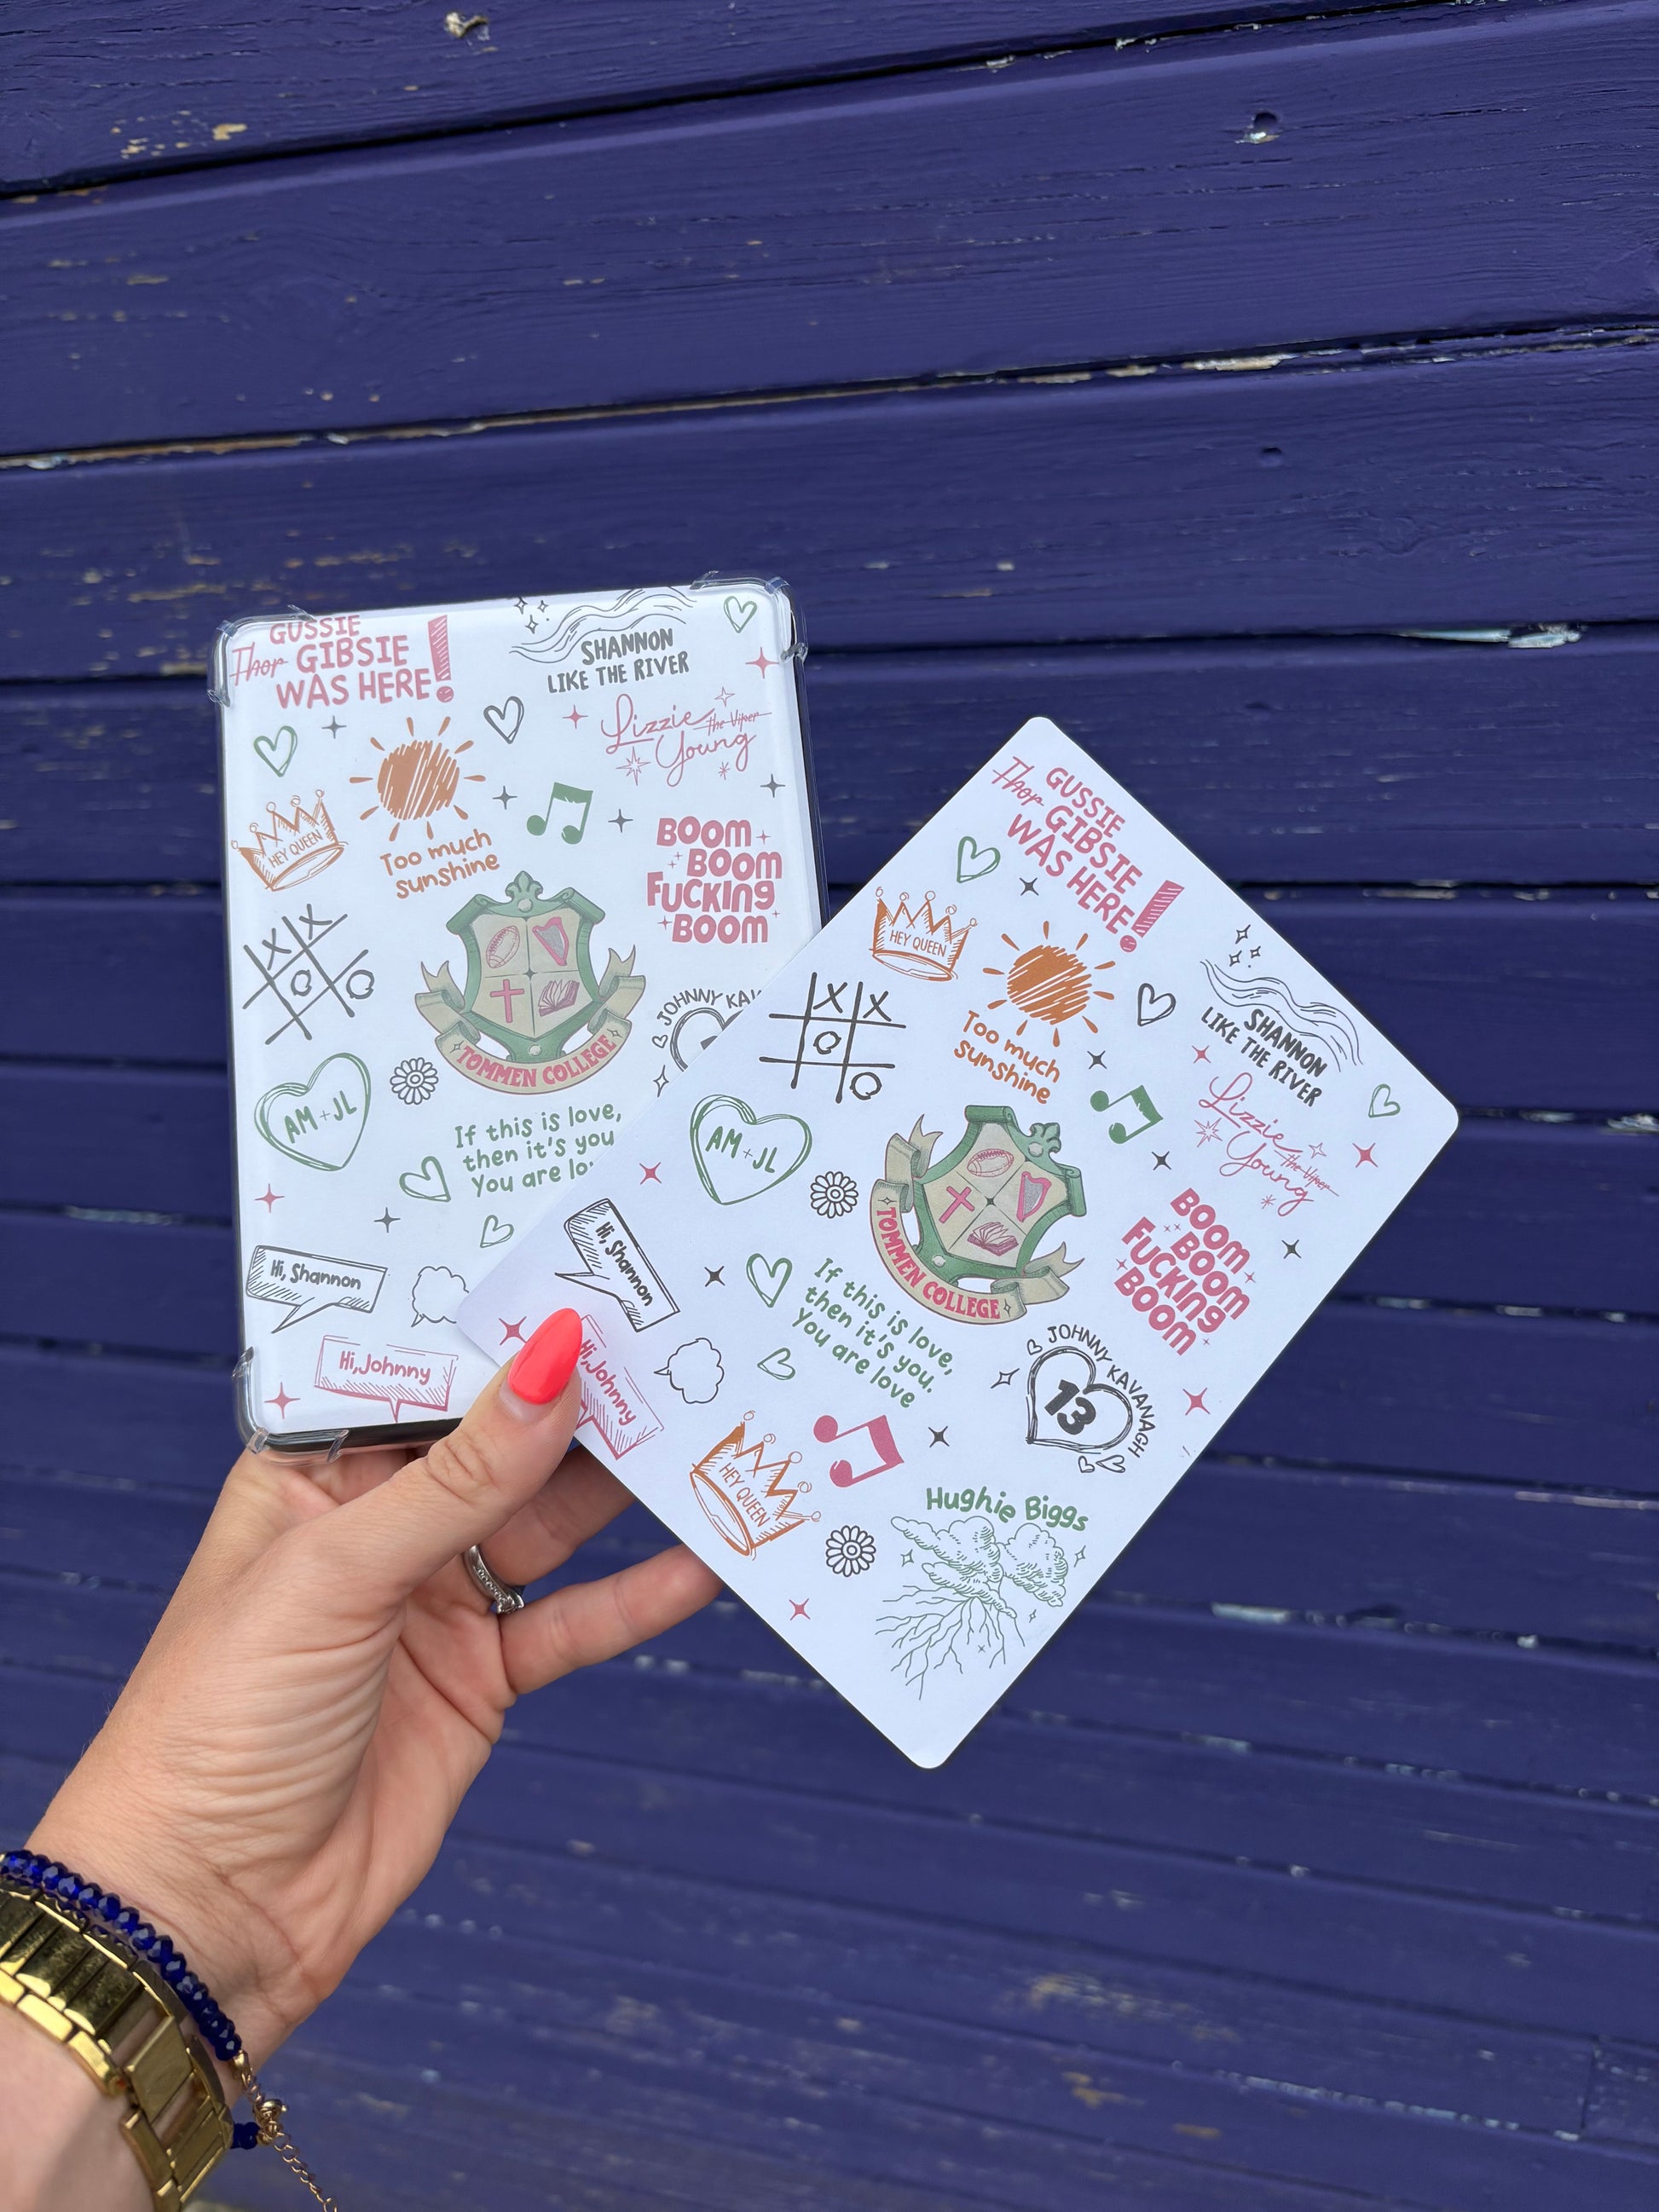 GUSSIE
Thor GIBSIE
WAS HERE!
SHANNON
LIKE THE RIVER
Lizzie the Viper
Young
HEY QUEEN
Too much
sunshine
BOOM
BOOM
FUCKING
BOOM
TOMMEN COLLEGE
JOHNNY KAV
AM+JL
If this is love,
then it's you
You are lo
Hi, Shannon
Hi, Johnny
GUSSIE
Thor GIBSIE
WAS HERE!
HEY QUEEN
Too much
sunshine
SHANNON
LIKE THE RIVER
Lizzie the Viper
Young
AM+JL
TOMMEN COLLEGE
BOOM
BOOM
FUCKING
BOOM
Hi, Shannon
If this is love,
then it's you.
You are love
JOHNNY KAVANAGH
13
Hi, Johnny
HEY QUEEN
Hughie Biggs